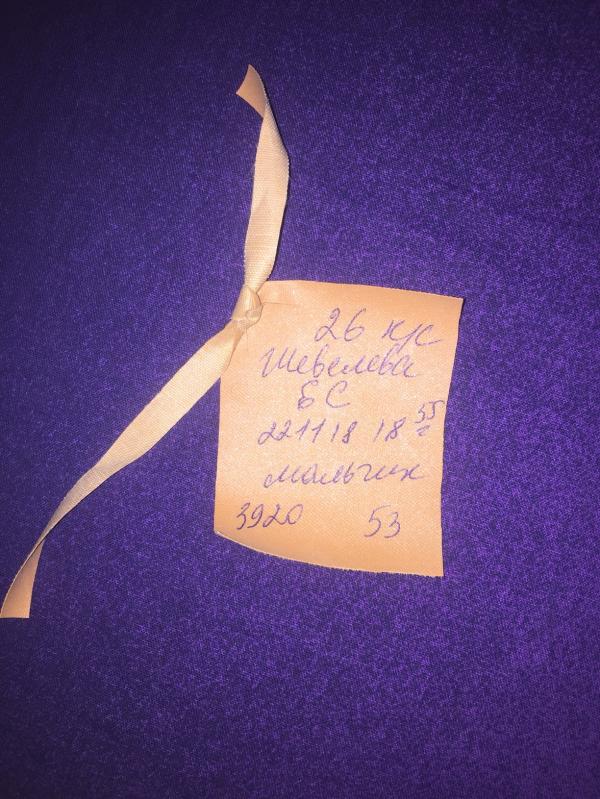 26 к/с
Шевелева
Е С
221118 18 35
мальчик
3920 53